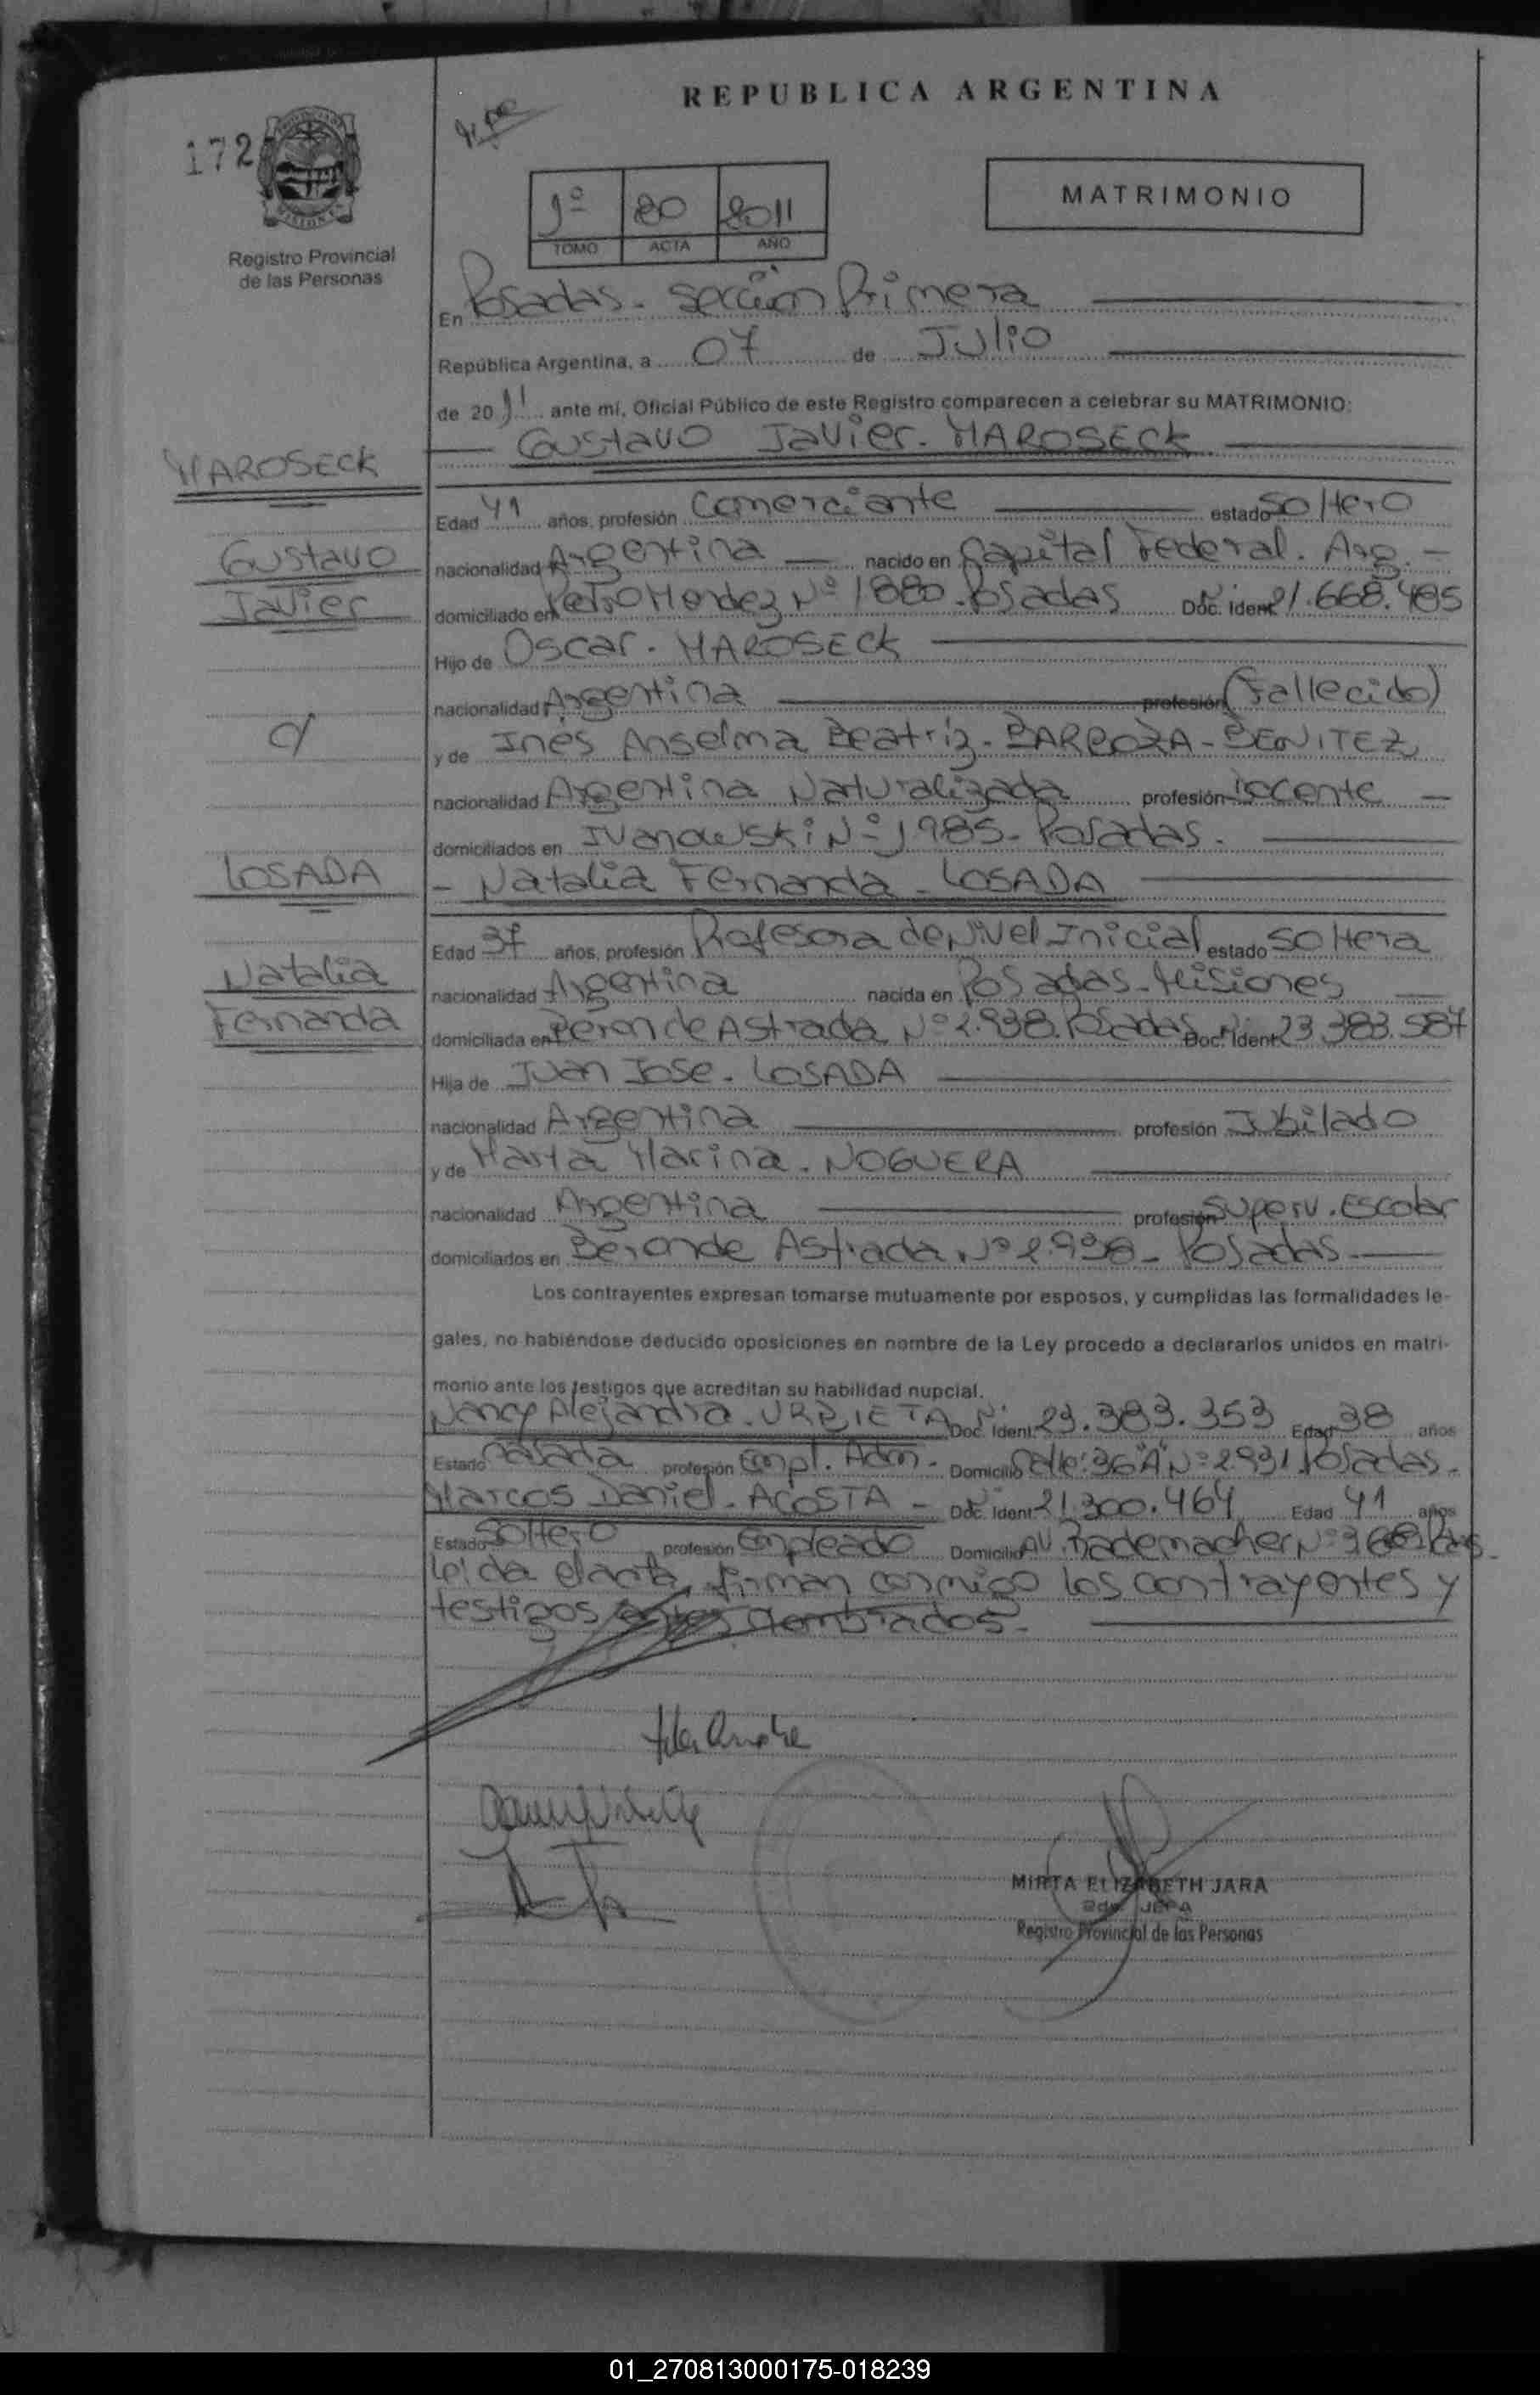 REPUBLICA ARGENTINA
172
1º 80 2011
TOMO ACTA AÑO
MATRIMONIO
Registro Provincial
de las Personas
En Posadas - Sección Primera
República Argentina, a 07 de Julio
de 2011 ante mí, Oficial Público de este Registro comparecen a celebrar su MATRIMONIO:
Gustavo Javier - MAROSECK
MAROSECK
Edad 41 años, profesión Comerciante estado Soltero
Gustavo
nacionalidad Argentina nacido en Capital Federal. Arg.
Javier
domiciliado en Nº 1880 - Posadas Doc. Ident. 21.668.485
Hijo de Oscar - MAROSECK
nacionalidad Argentina profesión (Fallecido)
c/
y de Ines Anselma Beatriz - BARBOZA - BENITEZ
nacionalidad Argentina Naturalizada profesión Docente
domiciliados en Ivanowski Nº 1985 - Posadas.
LOSADA
- Natalia Fernanda - LOSADA
Edad 37 años, profesión Profesora de Nivel Inicial estado Soltera
Natalia
nacionalidad Argentina nacida en Posadas - Misiones
Fernanda
domiciliada en Beron de Astrada Nº 2.938. Posadas Doc. Ident. 23.383.587
Hija de Juan Jose - LOSADA
nacionalidad Argentina profesión Jubilado
y de Marina - NOGUERA
nacionalidad Argentina profesión Superv. Escolar
domiciliados en Beron de Astrada Nº 2.938 - Posadas
Los contrayentes expresan tomarse mutuamente por esposos, y cumplidas las formalidades le-
gales, no habiéndose deducido oposiciones en nombre de la Ley procedo a declararlos unidos en matri-
monio ante los testigos que acreditan su habilidad nupcial.
Nancy Alejandra - URBIETA Doc. Ident. 23.383.353 Edad 38 años
Estado Casada profesión Empl. Adm. Domicilio Calle: 36 "A" Nº 2931 Posadas.
Marcos Daniel - ACOSTA - Doc. Ident. 21.300.464 Edad 41 años
Estado Soltero profesión Empleado Domicilio AV. Rademacher Nº
Leida el acta, firman conmigo los contrayentes y
testigos antes nombrados.
MIRTA ELIZABETH JARA
JEFA
Registro Provincial de las Personas
01_270813000175-018239